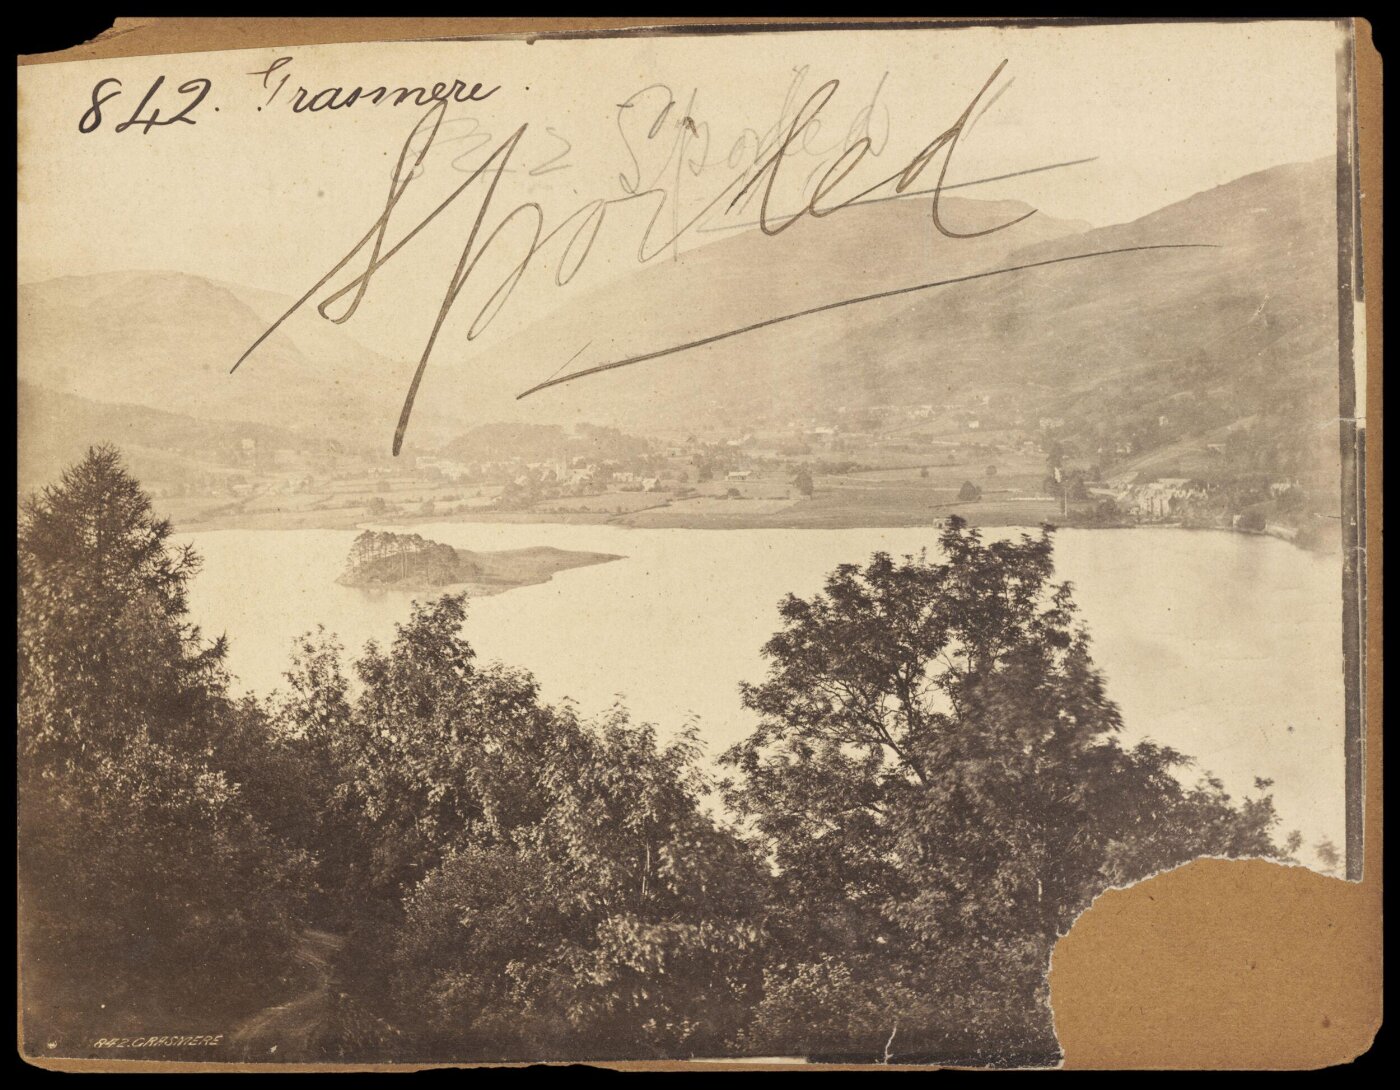 842. Grasmere.
842 Spoiled
Spoiled
842. GRASMERE